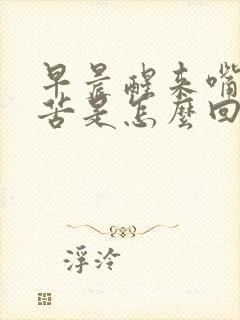 早晨醒来嘴
苦是怎麼回
浮泠